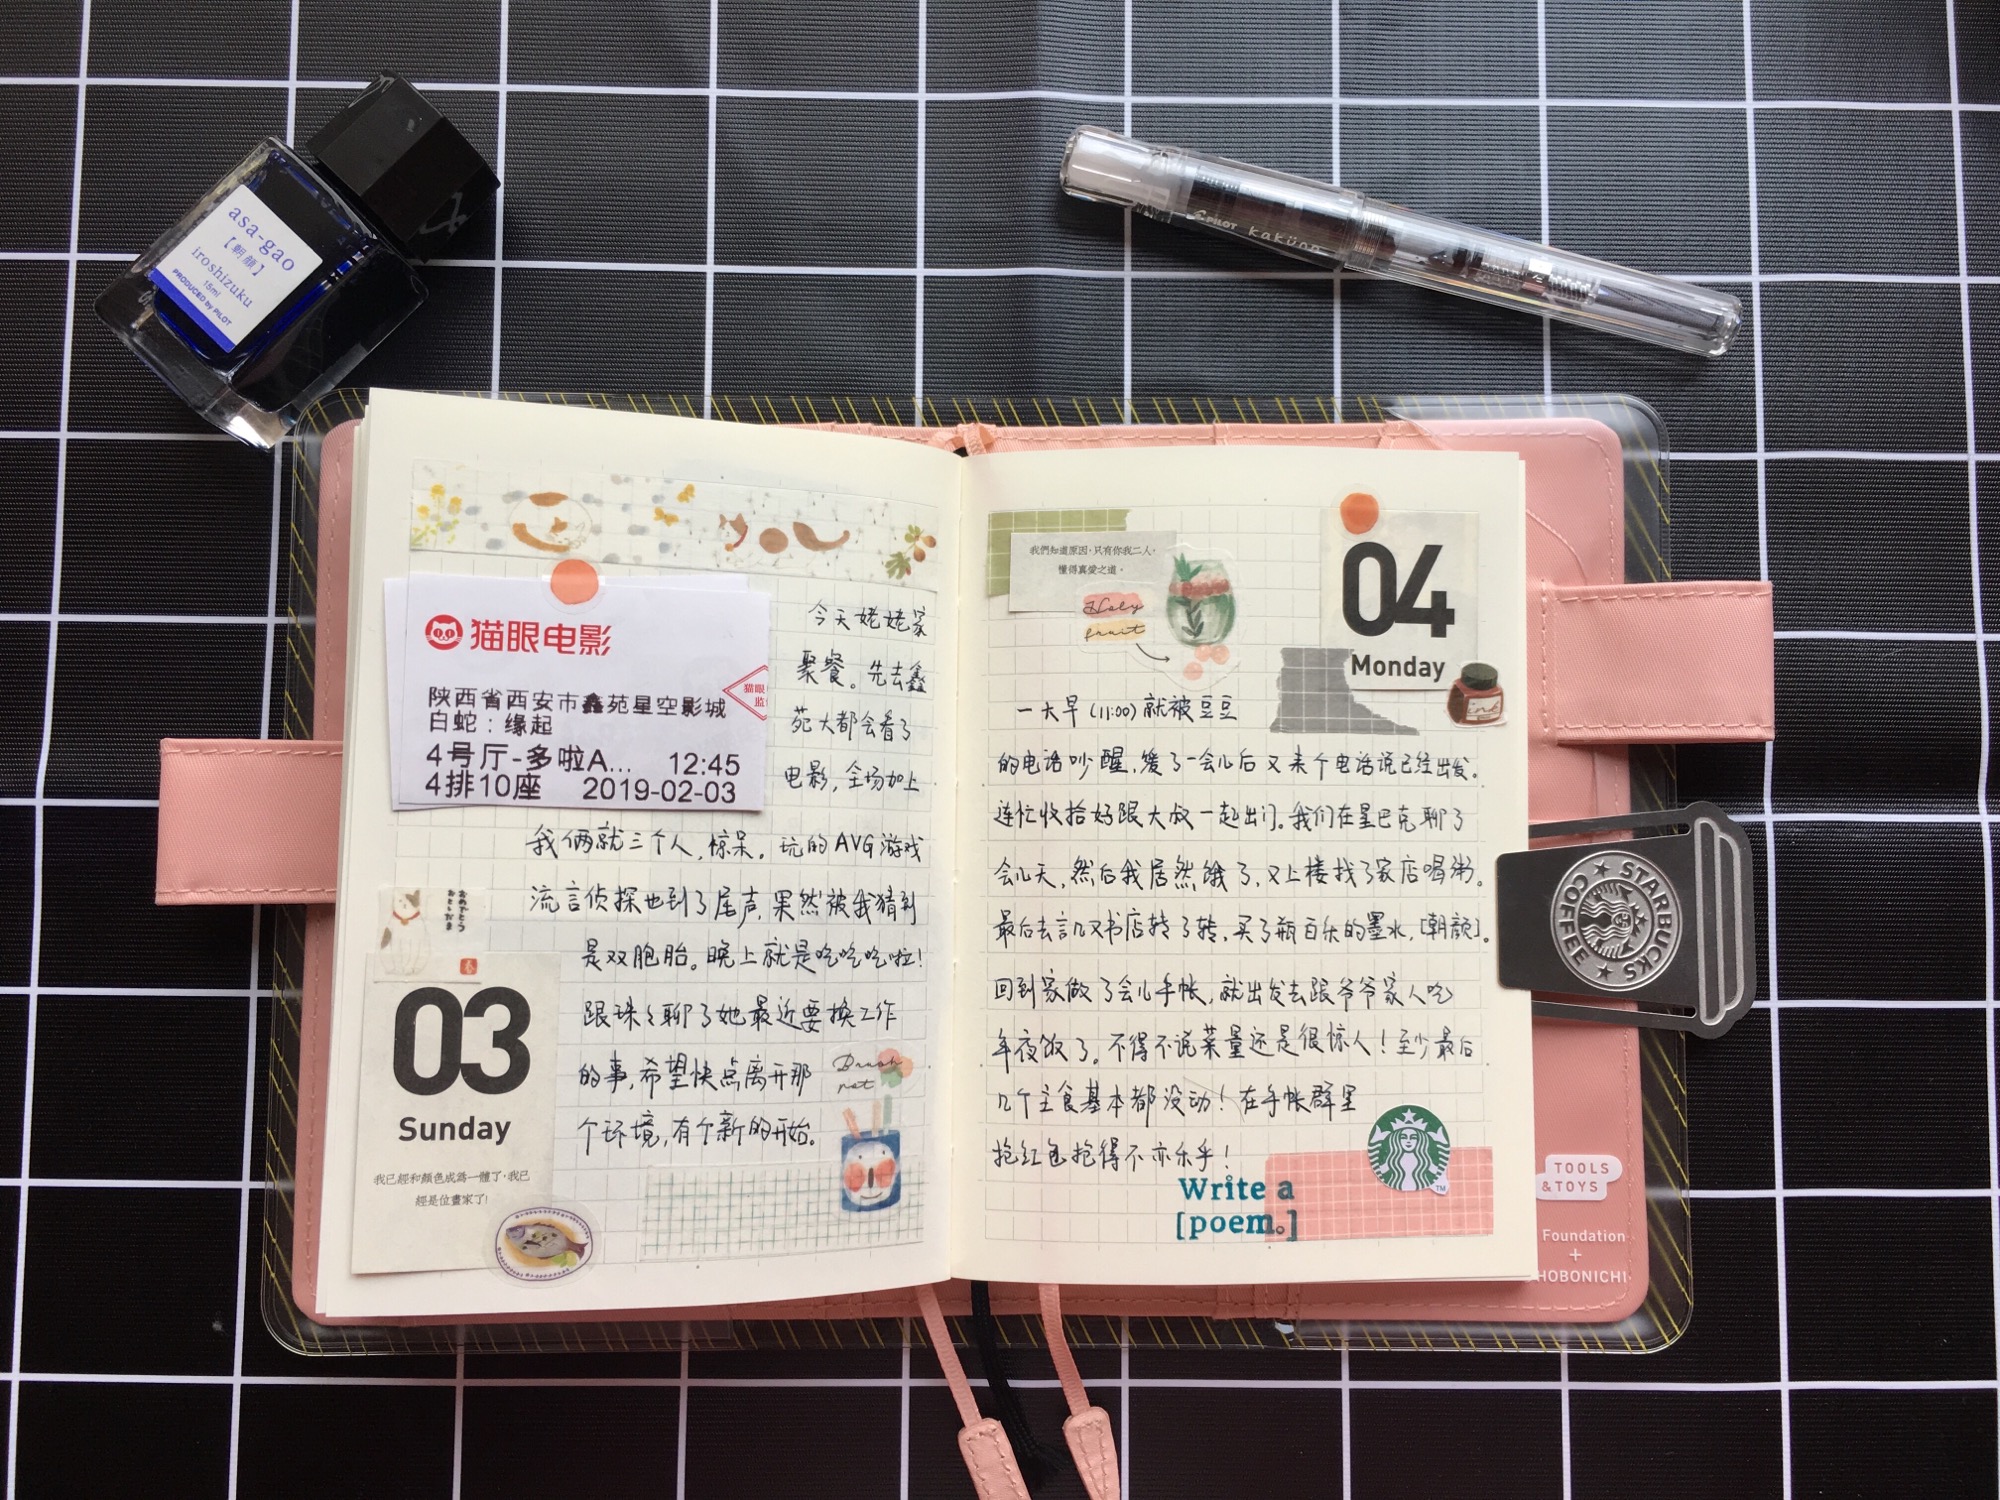 asa-gao
【朝顔】
iroshizuku
15ml
PRODUCED by PILOT
PILOT kakuno
猫眼电影
陕西省西安市鑫苑星空影城
白蛇：缘起
4号厅-多啦A... 12:45
4排10座 2019-02-03
今天姥姥家
聚餐。先去鑫
苑大都会看了
电影，全场加上
我俩就三个人，惊呆。玩的AVG游戏
流言侦探也到了尾声，果然被我猜到
是双胞胎。晚上就是吃吃吃啦！
跟珠々聊了她最近要换工作
的事，希望快点离开那
个环境，有个新的开始。
おめでとう
03
Sunday
我已經和顏色成為一體了，我已
經是位畫家了！
Brush
pot
我們知道原因，只有你我二人，
懂得真愛之道。
Holy
fruit
04
Monday
ink
一大早（11:00）就被豆豆
的电话吵醒，缓了一会儿后又来个电话说已经出发。
连忙收拾好跟大叔一起出门。我们在星巴克聊了
会儿天，然后我居然饿了，又上楼找了家店喝粥。
最后去言几又书店转了转，买了瓶百乐的墨水，[朝颜]。
回到家做了会儿手帐，就出发去跟爷爷家人吃
年夜饭了。不得不说菜量还是很惊人！至少最后
几个主食基本都没动！在手帐群里
抢红包抢得不亦乐乎！
Write a
[poem.]
STARBUCKS
COFFEE
TOOLS
&TOYS
Foundation
+
HOBONICHI